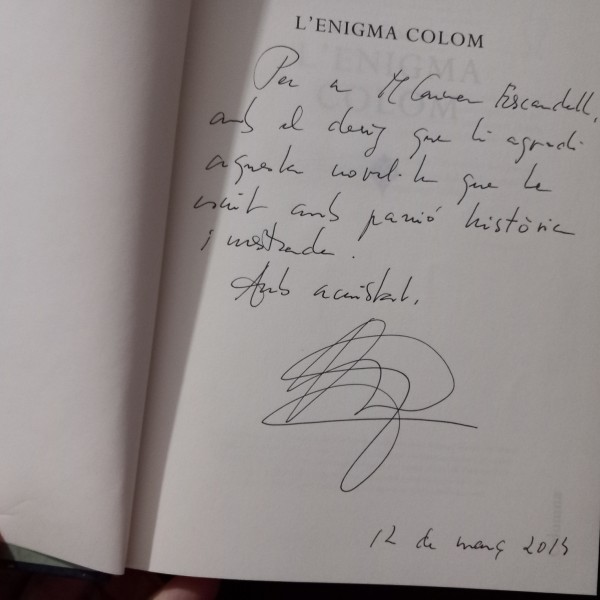 L'ENIGMA COLOM
Per a M Carmen Escandell,
amb el desig que li agradi
aquesta novel·la que he
escrit amb passió històrica
i
Amb amistat,
12 de març 2015